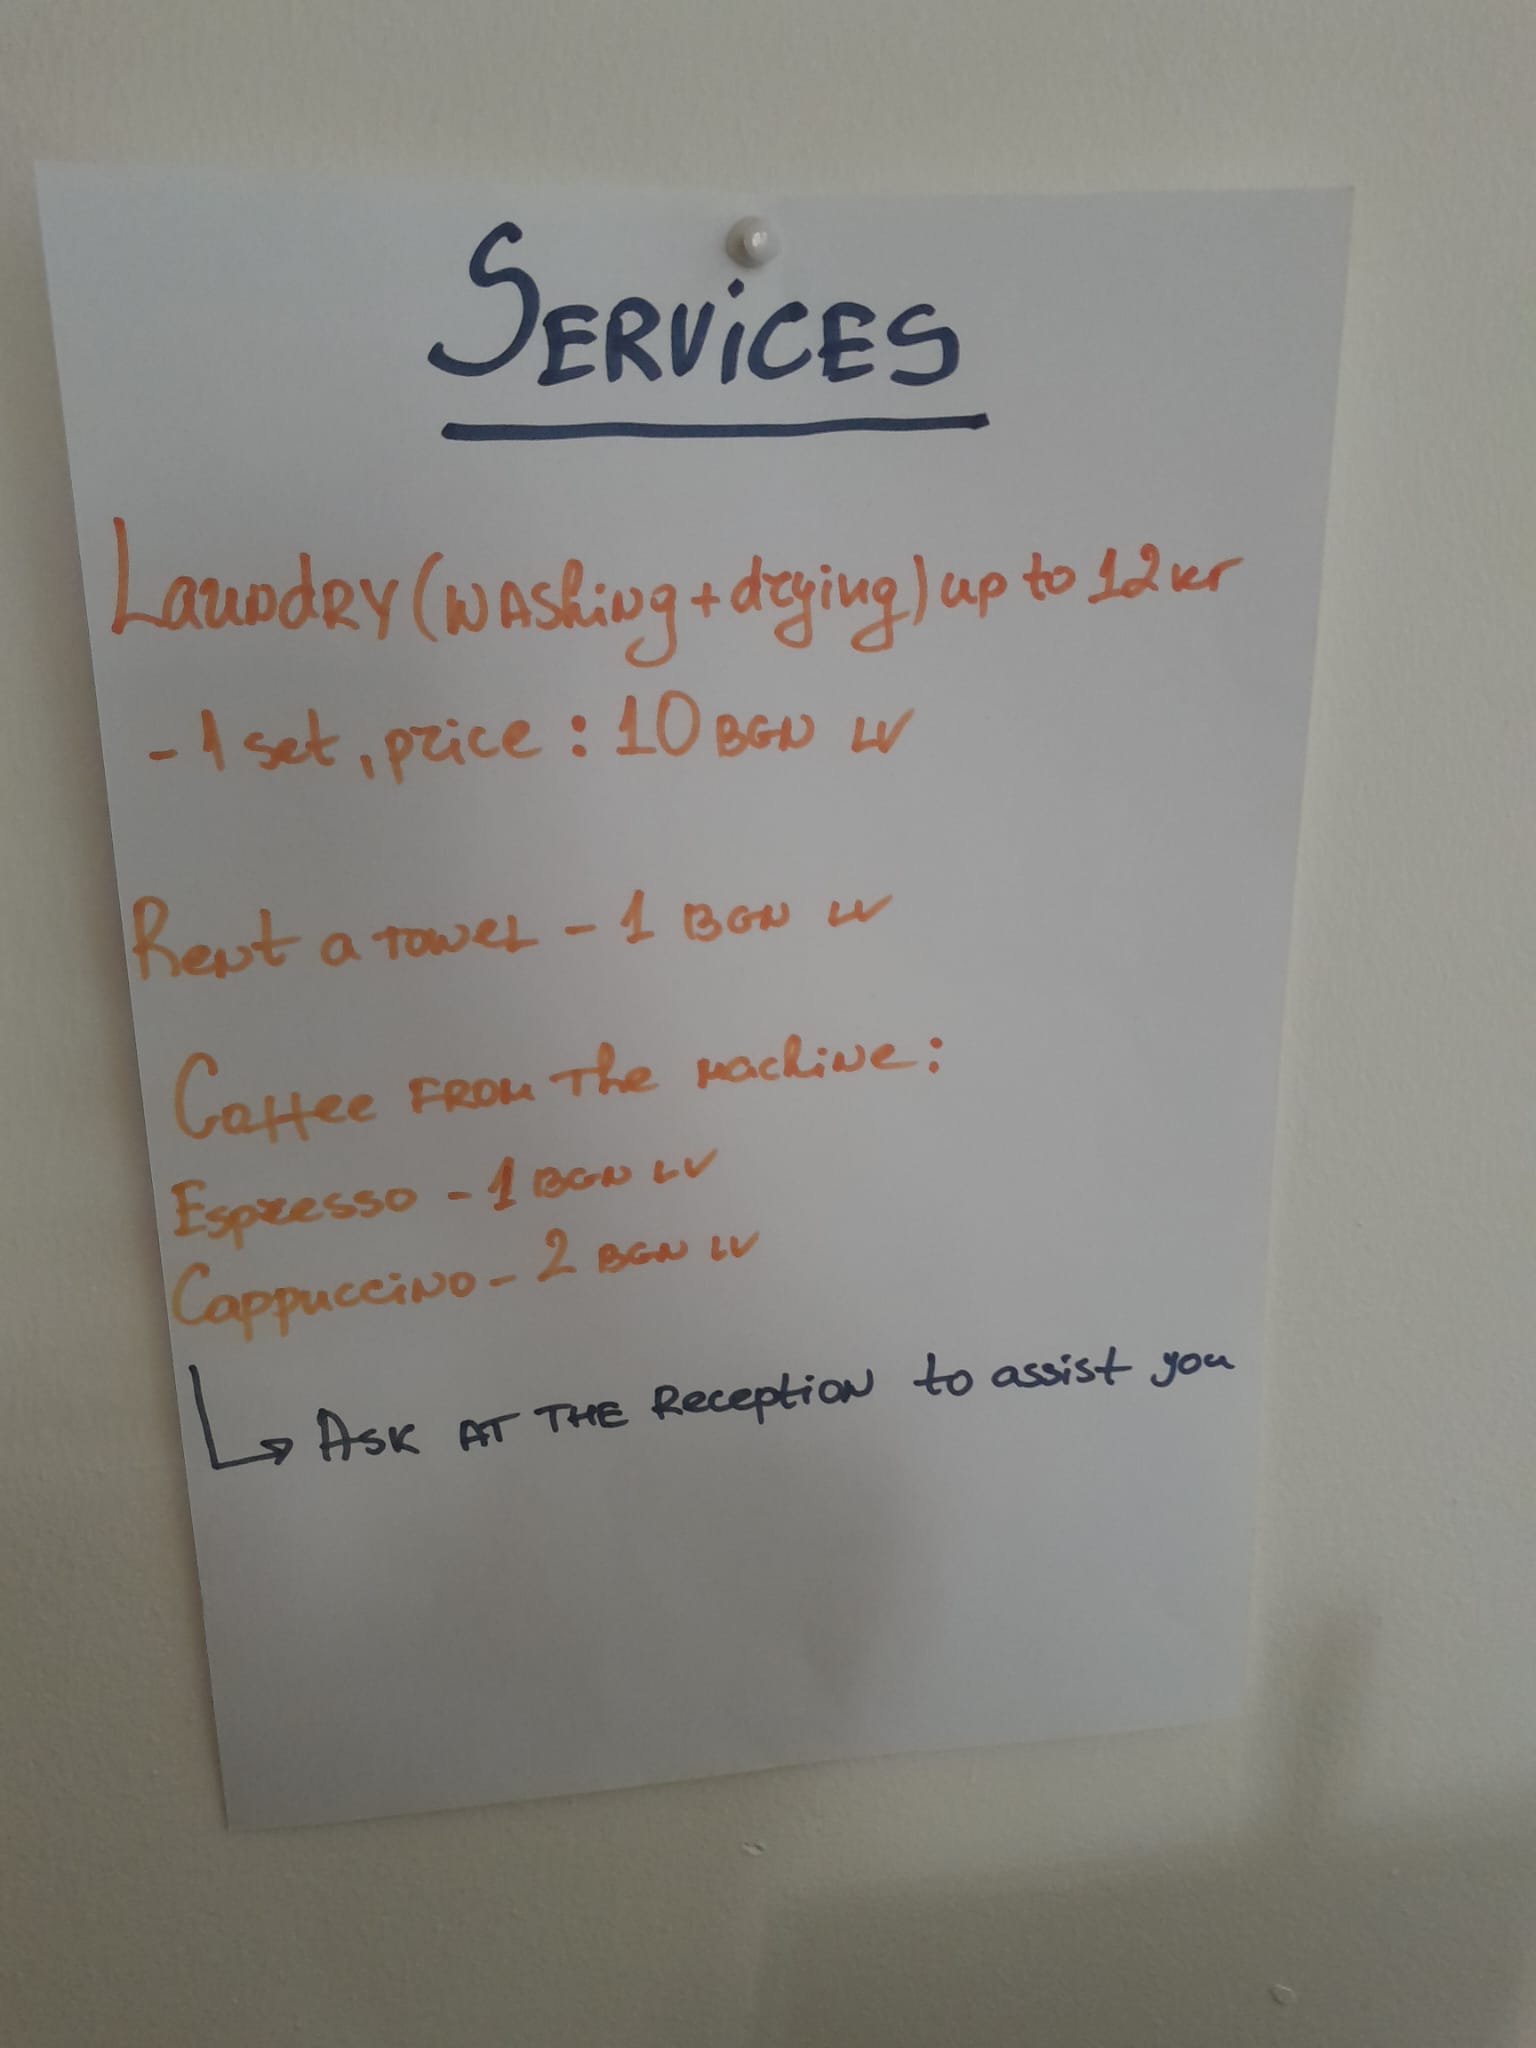 SERVICES
LAUNDRY (WAShiNg + drying) up to 12 кг
- 1 set, price : 10 BGN LV
RENt a TOWEL - 1 BGN LV
Coffee FROM The Machine:
Espresso - 1 BGN LV
CappucciNO - 2 BGN LV
↳ ASK AT THE Reception to assist you